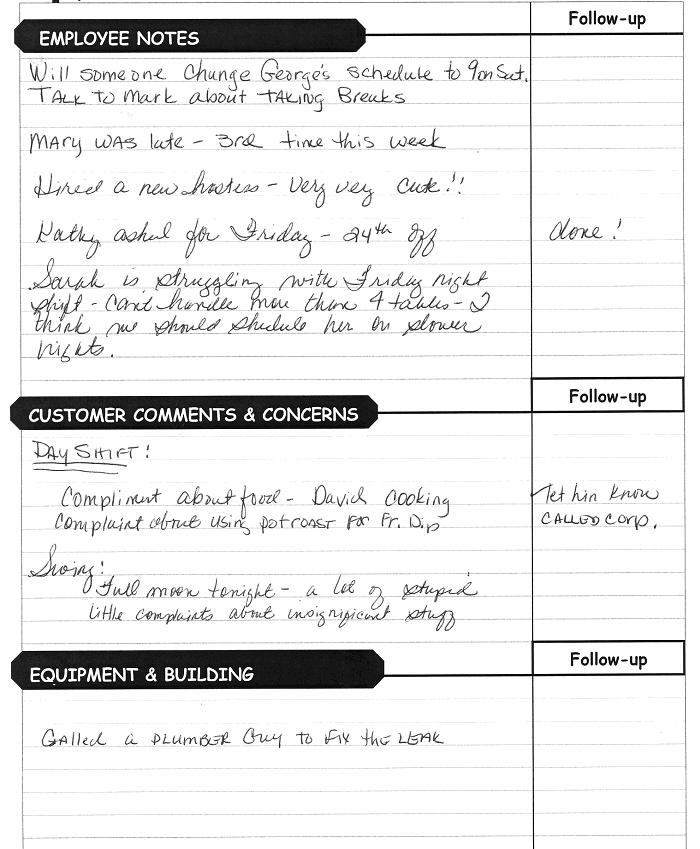 Follow-up
EMPLOYEE NOTES
Will someone Change George's schedule to 9 on Sat.
TALK TO Mark about TAKING Breaks
MARY WAS late - 3rd time this week
Hired a new hostess - Very very cute!!
Kathy asked for Friday - 24th off done!
Sarah is struggling with Friday night
shift - Can't handle more than 4 tables - I
think we should shedule her on slower
nights.
Follow-up
CUSTOMER COMMENTS & CONCERNS
DAY SHIFT!
Compliment about food - David Cooking let him know
Complaint about using potroast for Fr. Dip CALLED Corp.
Swing!
Full moon tonight - a lot of stupid
little complaints about insignificant stuff
Follow-up
EQUIPMENT & BUILDING
CAlled a PLUMBER Guy to FIX the LEAK